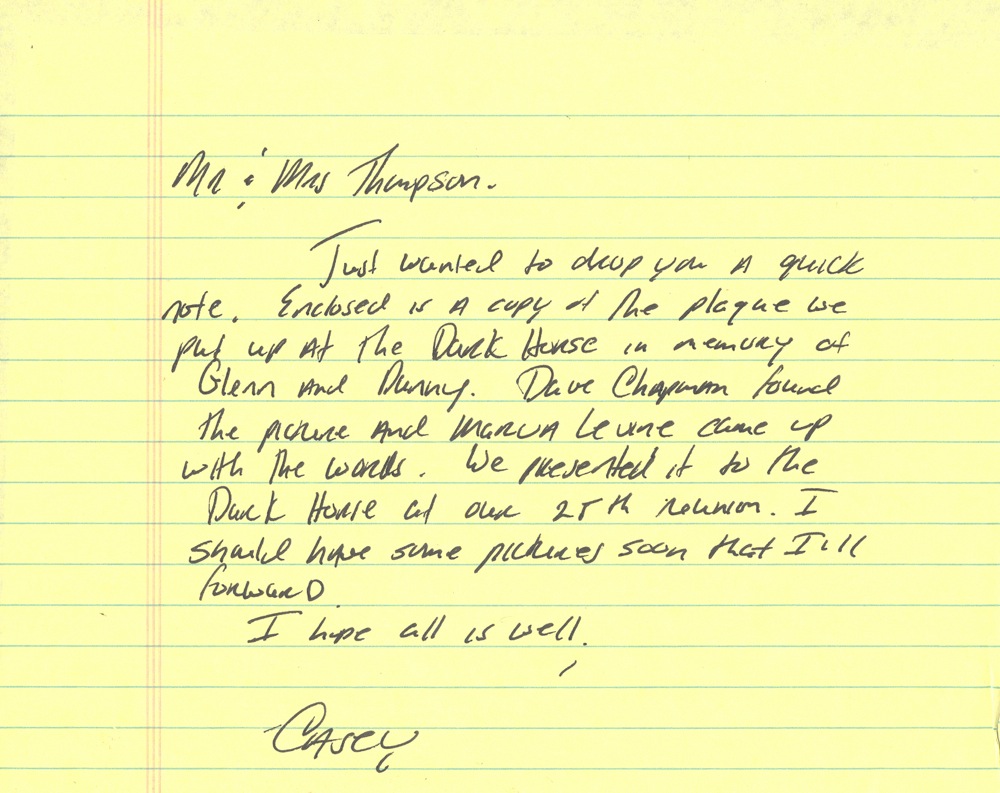 Mr & Mrs Thompson.
Just wanted to drop you a quick
note. Enclosed is a copy of the plaque we
put up at the Dark Horse in memory of
Glenn and Danny. Dave Chapman found
the picture and Marcia Levine came up
with the words. We presented it to the
Dark Horse at our 25th reunion. I
should have some pictures soon that I'll
forward
I hope all is well.
Casey